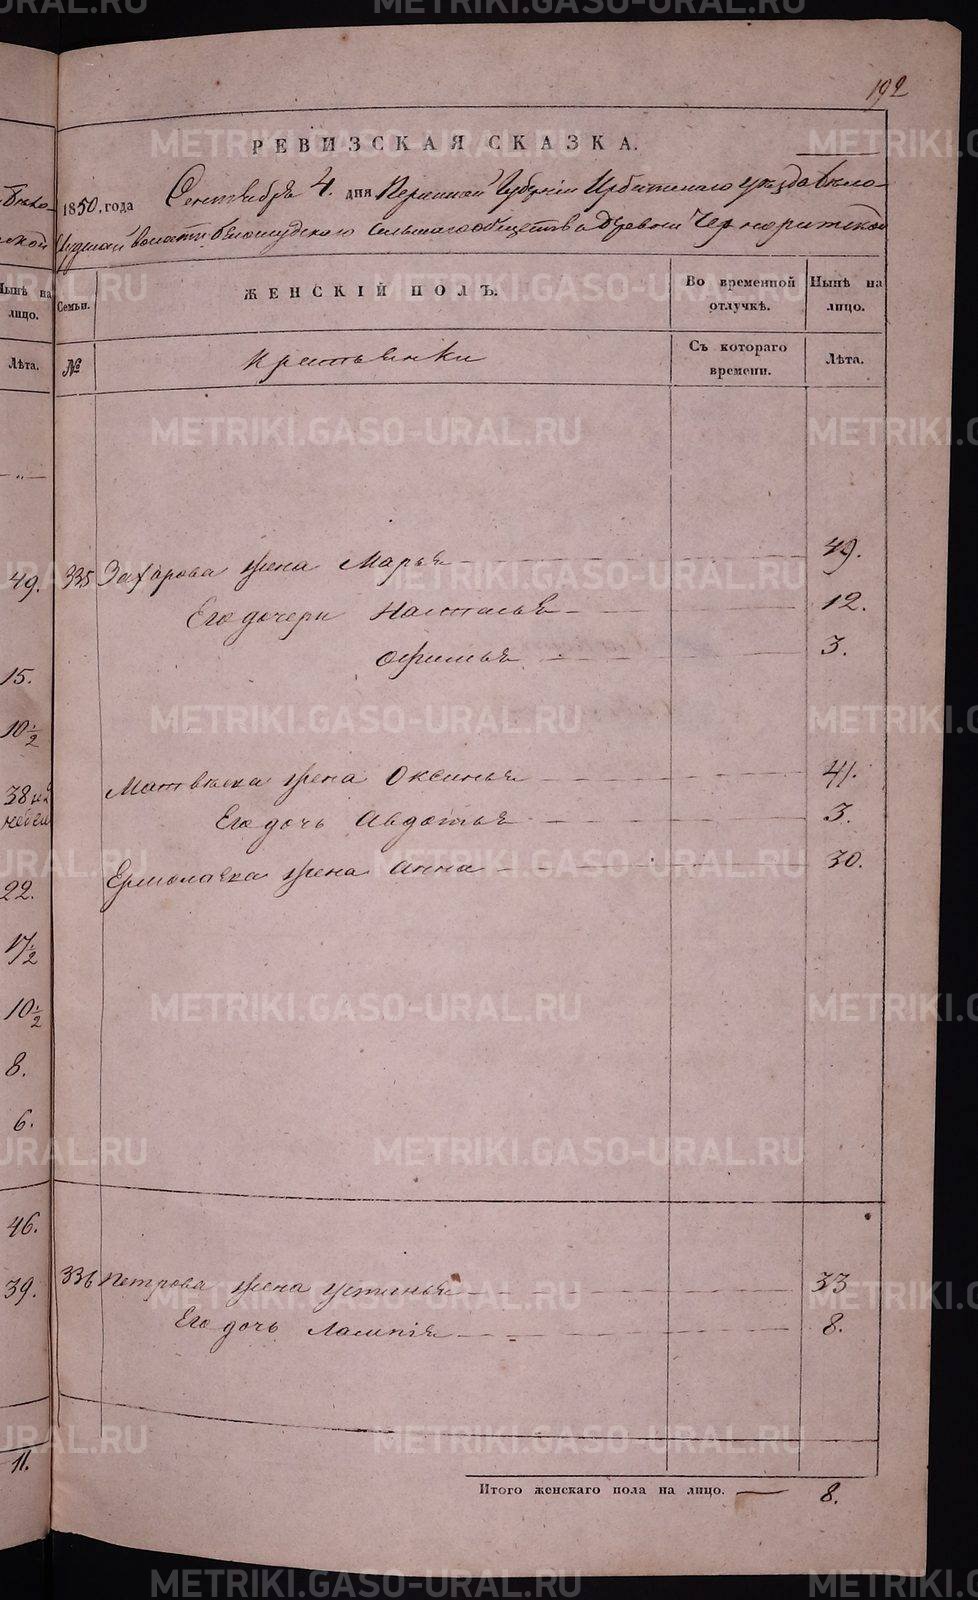 192
РЕВИЗСКАЯ СКАЗКА.
1850, года Сентября 4. дня Пермской Губернии Ирбитскаго уезда Бело-
слудской волости Белослудского Сельскаго общества Деревни Чернорицкой
Семьи. ЖЕНСКІЙ ПОЛЪ. Во временной отлучкѣ. Нынѣ на лицо.
№ Крестьянки Съ котораго времени. Лѣта.
335 Захарова жена Марья 49.
Его дочери Настасья 12.
Офимья 3.
Матвѣева жена Оксинья 41.
Его дочь Авдотья 3.
Ермолаева жена Анна 30.
336 Петрова жена Устинья 33
Его дочь Лампія 8.
Итого женскаго пола на лицо. 8.
Нынѣ на лицо.
Лѣта.
49.
15.
10 1/2
38
22.
17 1/2
10 1/2
8.
6.
46.
39.
11.
METRIKI.GASO-URAL.RU